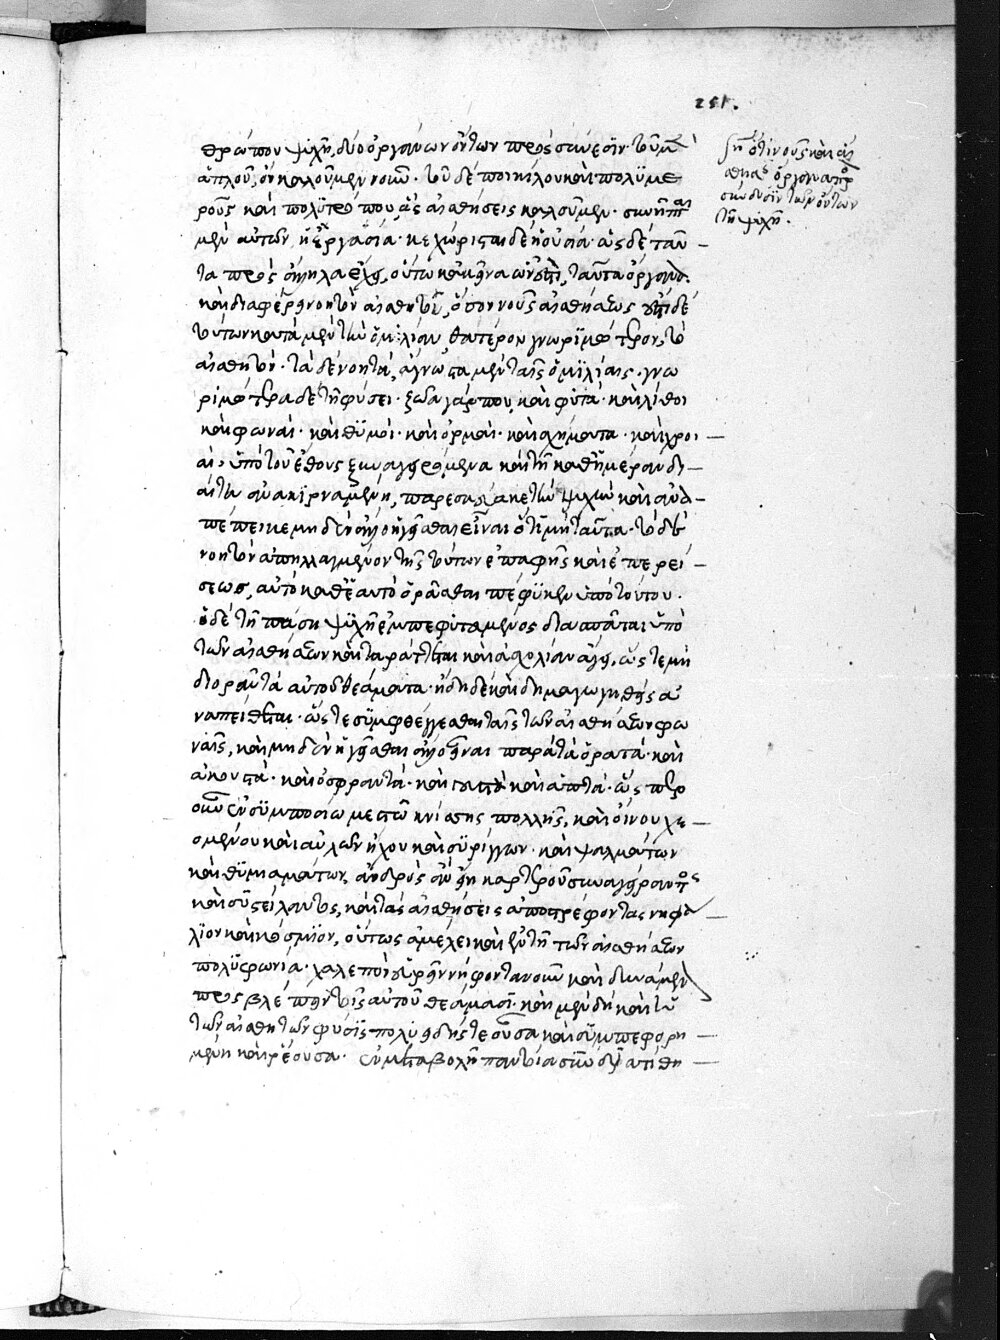 251.
θρώπου ψυχῇ, δύο ὀργάνων ὄντων πρὸς σύνεσιν· τοῦ μὲν
ἁπλοῦ, ὃν καλοῦμεν νοῦν· τοῦ δὲ ποικίλου καὶ πολυμε
ροῦς καὶ πολυτρόπου, ἃς αἰσθήσεις καλοῦμεν· συνῆπται
μὲν αὐτῶν ἡ ἐργασία· κεχώρισται δὲ ἡ οὐσία· ὡς δὲ ταῦ
τα πρὸς ἄλληλα ἔχει, οὕτω κἀκεῖνα ὧν ἐστὶ ταῦτα ὄργανα.
καὶ διαφέρει νοητὸν αἰσθητοῦ, ὅσον νοῦς αἰσθήσεως· ἔστι δὲ
τούτων κατὰ μὲν τὴν ὁμιλίαν, θάτερον γνωριμώτερον, τὸ
αἰσθητόν· τὰ δὲ νοητά, ἄγνωστα μὲν ταῖς ὁμιλίαις· γνω
ριμώτερα δὲ τῇ φύσει· ζῶα γάρ που, καὶ φυτά· καὶ λίθοι
καὶ φωναί· καὶ θυμοί· καὶ ὀρμαί· καὶ σχήματα· καὶ χροι
αί, ὑπὸ τοῦ ἔθους ξυναγειρόμενα καὶ τῇ καθημέραν δι
αίτῃ ἀνακιρνάμενα, παρέσυρακε τὴν ψυχὴν καὶ ἀνα
πέπεικε μηδὲν ἄλλο ἡγεῖσθαι εἶναι ὅτι μὴ ταῦτα· τὸ δὲ
νοητὸν ἀπηλλαγμένον τῆς τούτων ἐπαφῆς καὶ ἐπερεί
σεως, αὐτὸ καθ' ἑαυτὸ ὁρᾶσθαι πέφυκεν ὑπὸ τοῦ νοῦ·
ὁ δὲ τῇ πάσῃ ψυχῇ ἐμπεφυτευμένος διασπᾶται ὑπὸ
τῶν αἰσθήσεων καὶ ταράττεται καὶ ἀσχολίαν ἄγει, ὥστε μὴ
διορᾶν τὰ αὑτοῦ θεάματα· ἤδη δὲ καὶ δημαγωγηθεὶς ἀ
ναπείθεται· ὥστε συμφθέγγεσθαι ταῖς τῶν αἰσθήσεων φω
ναῖς, καὶ μηδὲν ἡγεῖσθαι ἄλλο εἶναι παρὰ τὰ ὁρατὰ· καὶ
ἀκουστά· καὶ ὀσφραντά· καὶ γευστὰ καὶ ἁπτά· ὥσπερ
οὖν ἐν συμποσίῳ μεστῷ κνίσης πολλῆς, καὶ οἴνου χε
ομένου καὶ αὐλῶν ἤχου καὶ συρίγγων· καὶ ψαλμάτων
καὶ θυμιαμάτων, ἀνδρὸς ἂν εἴη καρτεροῦ συναγείραντος
καὶ συστείλαντος, καὶ τὰς αἰσθήσεις ἀποστρέφοντος νηφά
λιον καὶ κόσμιον, οὕτως ἀμέλει καὶ ἐν τῇ τῶν αἰσθήσεων
πολυφωνίᾳ· χαλεπὸν εὑρεῖν νήφοντα νοῦν καὶ δυνάμενον
προσβλέπειν τοῖς αὐτοῦ θεάμασι· καὶ μὲν δὴ καὶ ἡ
τῶν αἰσθητῶν φύσις πολυειδής τε οὖσα καὶ συμπεφορη
μένη καὶ ῥέουσα· ἐν μεταβολῇ παντοία συνδιατίθη
ση. ὅτι νοῦς καὶ αἴσ
θησις ὄργανα πρὸς
σύνεσιν τῶν ὄντων
τῇ ψυχῇ.